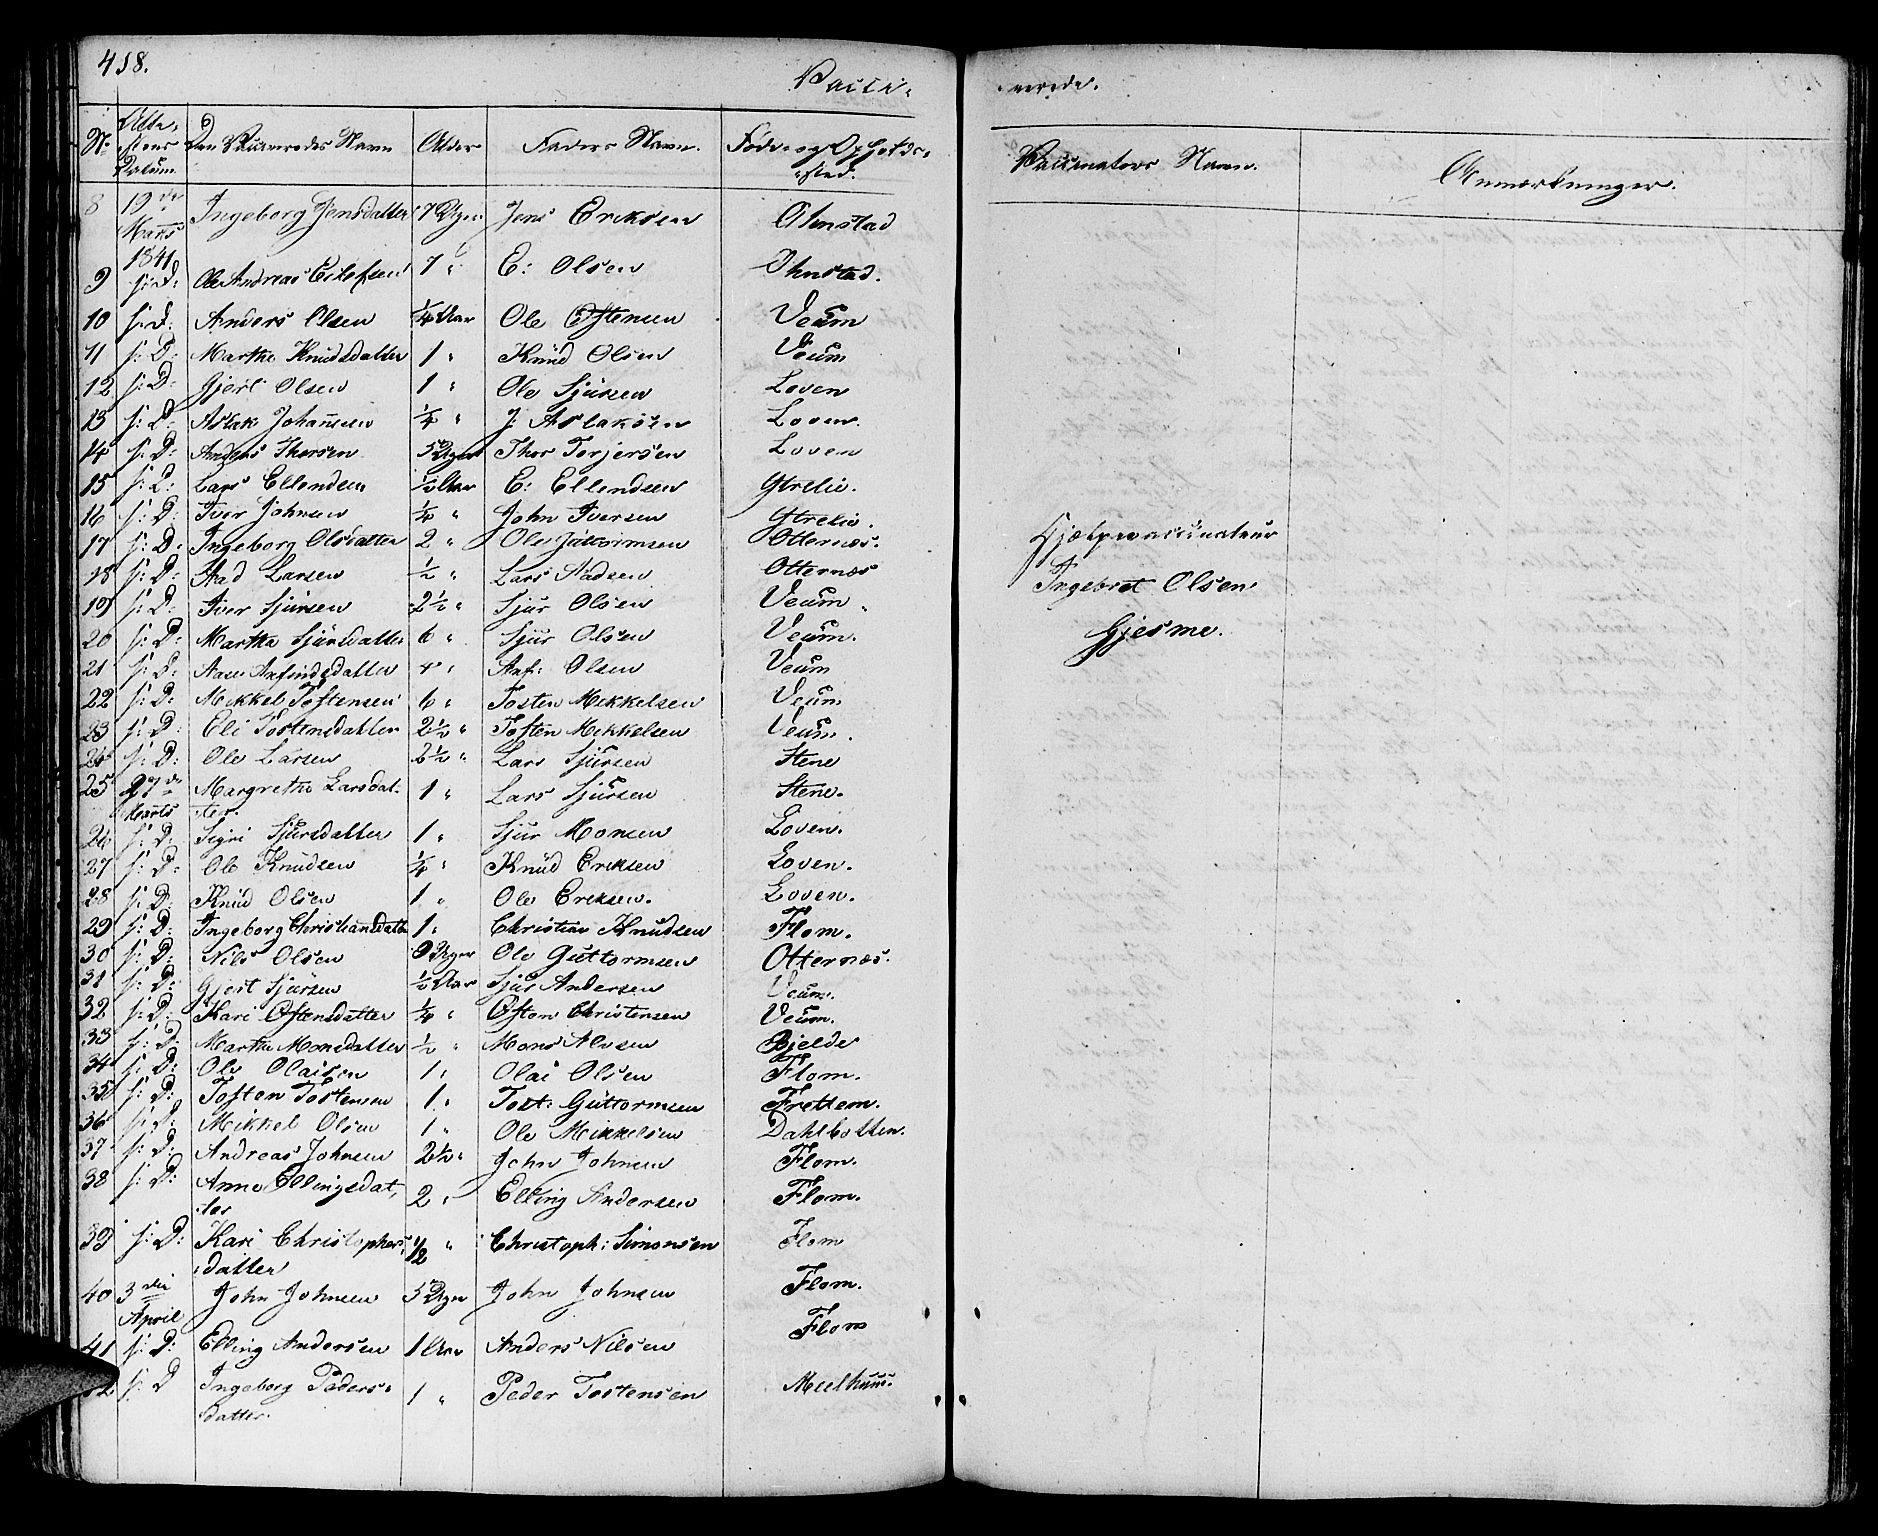 418.
Vacci- nerede.
No Attestens Datum Den Vaccineredes Navn Alder Faders Navn. Føde- og Opholds-sted. Vaccinateurs Navn. Anmærkninger.
8 19de Marts 1841 Ingeborg Jensdatter 7 Uger Jens Eriksen Ohnstad
9 s: D: Ole Andreas Eilefsen 7 " E: Olsen Ohnstad.
10 s: D: Anders Olsen 1/4 Aar Ole Østensen Veum
11 s: D: Martha Knudsdatter 1 " Knud Olsen Veum
12 s: D: Gjert Olsen 1 " Ole Sjursen Loven
13 s: D: Aslak Johannsen 1/4 " J: Aslaksen Loven.
14 s: D: Anders Thorsen 5 Uger Thor Torjersen Loven
15 s: D: Lars Ellendsen 1/2 Aar E: Ellendsen Ytrelie.
16 s: D: Iver Johnsen 1/4 " John Iversen Ytrelie.
17 s: D: Ingeborg Olsdatter 2 " Ole Guttormsen Otternæs.
18 s: D: Aad Larsen 1/2 " Lars Aadsen Otternæs
19 s: D: Iver Sjursen 2 1/2 " Sjur Olsen Veum
20 s: D: Martha Sjursdatter 6 " Sjur Olsen Veum.
21 s: D: Aase Anfindsdatter 4 " Anf: Olsen Veum
22 s: D: Mikkel Tostensen 6 " Tosten Mikkelsen Veum
23 s: D: Eli Tostensdatter 2 1/2 " Tosten Mikkelsen Veum.
24 s: D: Ole Larsen 2 1/2 " Lars Sjursen Stene
25 27de Marts Margrethe Larsdat-
ter. 1 " Lars Sjursen Stene.
26 s: D: Sigri Sjursdatter 1 " Sjur Monsen Loven.
27 s: D: Ole Knudsen 1/4 " Knud Eriksen Loven.
28 s: D: Knud Olsen 1 " Ole Eriksen. Loven.
29 s: D: Ingeborg Christiansdatter 1 " Christian Knudsen Flom.
30 s: D: Nils Olsen 9 Uger Ole Guttormsen Otternæs.
31 s: D: Gjert Sjursen 1/2 Aar Sjur Andersen Veum.
32 s: D: Kari Østensdatter 1/4 " Østen Christensen Veum.
33 s: D: Martha Monsdatter 1/2 " Mons Alvsen Bjelde
34 s: D: Ole Olaisen 1 " Olai Olsen Flom.
35 s: D: Tosten Tostensen 1 " Tost: Guttormsen Frettem.
36 s: D: Mikkel Olsen 1 " Ole Mikkelsen Dahlbotten.
37 s: D: Andreas Johnsen 2 1/2 " John Johnsen Flom.
38 s: D: Anne Ellingsdat-
ter 2 " Elling Andersen Flom.
39 s: D: Kari Christophers-
datter 1/2 " Christoph: Simonsen Flom
40 3die April John Johnsen 5 Uger John Johnsen Flom.
41 s: D: Elling Andersen 1 Aar Anders Nilsen Flom
42 s: D Ingeborg Peders-
datter. 1 " Peder Tostensen Meelhuus.
Hjælpevaccinateur
Ingebret Olsen
Gjesme.